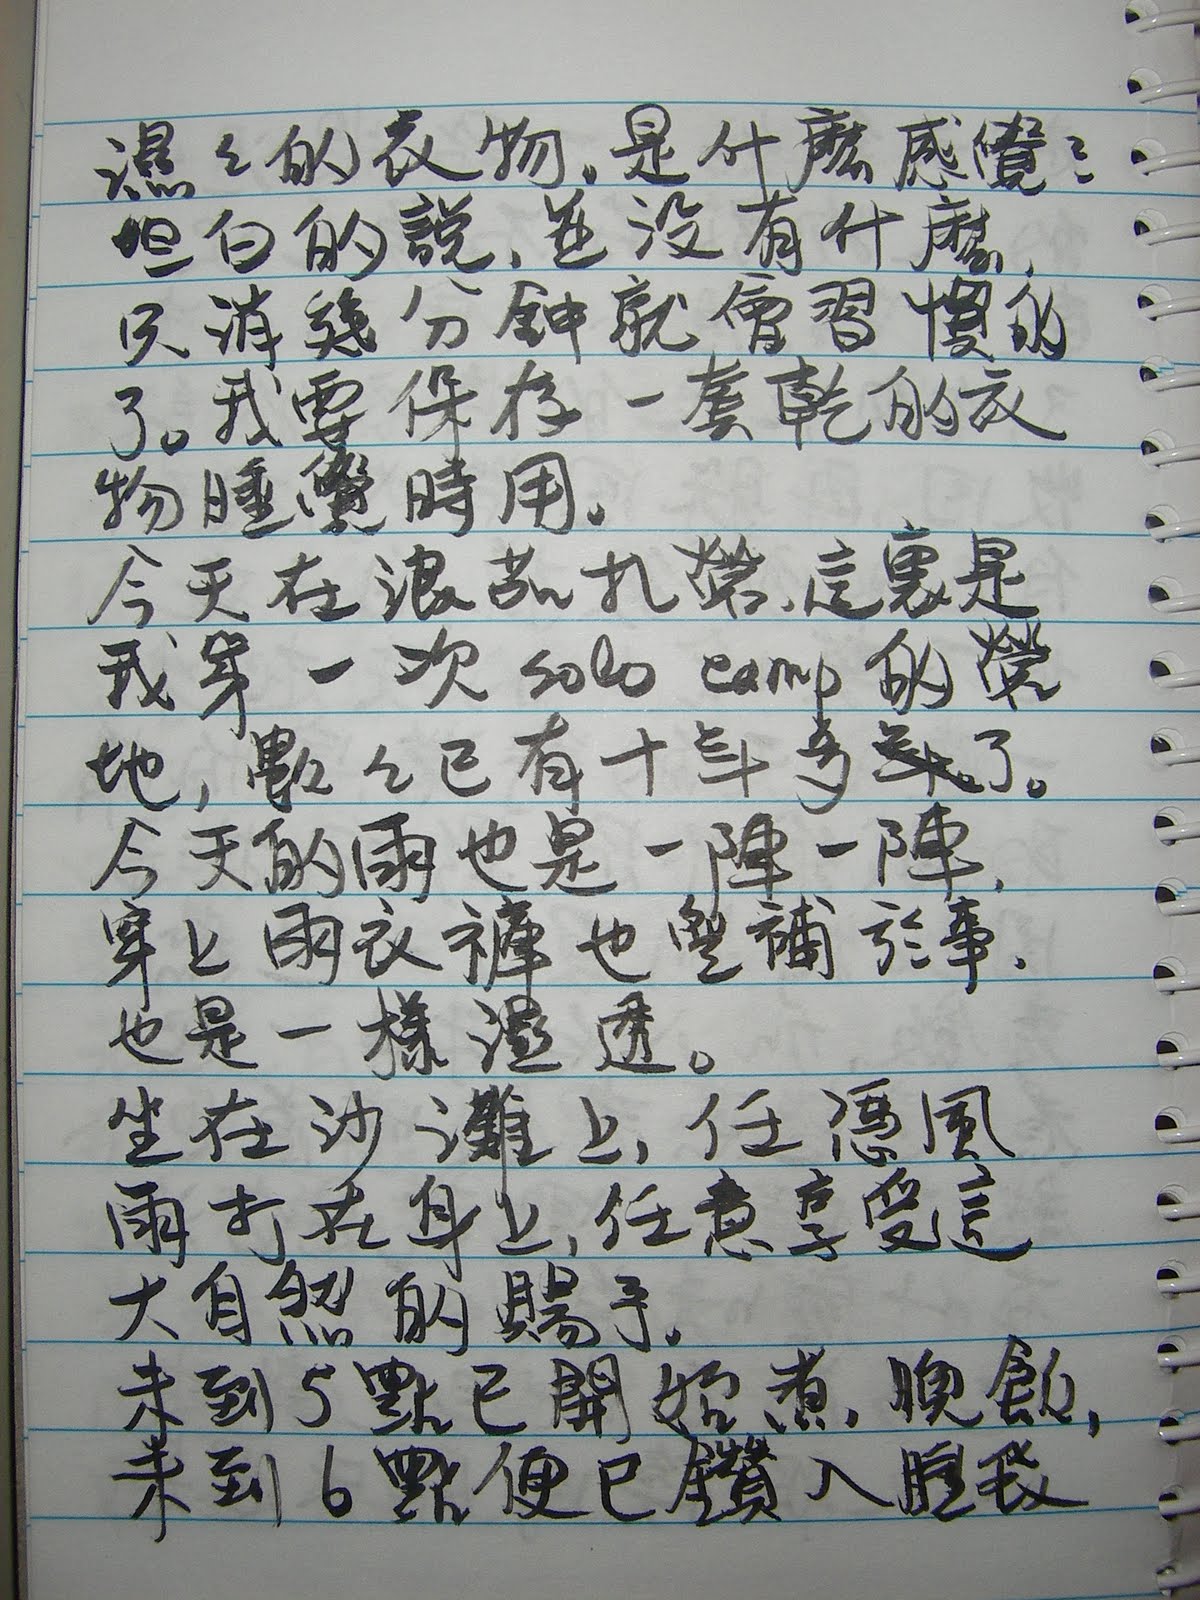 濕々的衣物。是什麼感覺?
坦白的說,並沒有什麼,
只消幾分鐘就會習慣的
了。我要保存一套乾的衣
物睡覺時用。
今天在浪茄扎營,這裏是
我第一次 solo camp 的營
地,點々已有十年多了。
今天的雨也是一陣一陣,
穿上雨衣褲也無補於事,
也是一樣濕透。
坐在沙灘上,任憑風
雨打在身上,任意享受這
大自然的賜予。
未到5點已開始煮晚飯,
未到6點便已鑽入睡袋